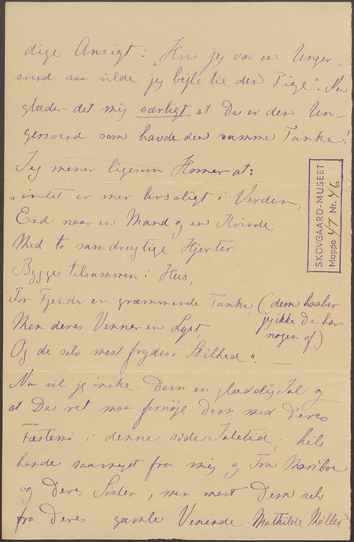 dige Ansigt: "Hvis jeg var en Unger-
svend saa vilde jeg bejle til den Pige". Nu
glæder det mig særligt at De er den Un-
gersvend som havde den samme Tanke!
Jeg mener ligesom Homer at:
"intet er mer livsaligt i Verden,
End naar en Mand og en Kvinde
Med to samdrægtige Hjerter
Bygger tilsammen i Hus,
For Fjender en græmmende Tanke (dem haaber
jeg ikke De har
nogen af)
Men deres Venner en Lyst
Og de selv mest fryder i Stilhed". —
Nu vil jeg ønske Dem en glædelig Jul og
at De ret maa fornøje Dem med Deres
Fæstemø i denne søde Juletid, hils
hende saameget fra mig og Fru
og Deres Søster, men mest Dem selv
fra Deres gamle Veninde Mathilde Møller
SKOVGAARD-MUSEET
Mappe 47 Nr. 46